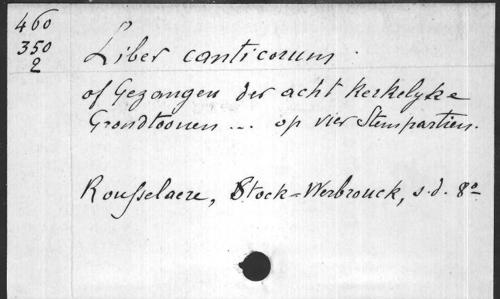 460
350
2
Liber canticorum
of Gezangen der acht Kerkelyke
Grondtoonen ... op vier Stempartien.
Rousselaere, Stock=Werbrouck, s.d. 8o